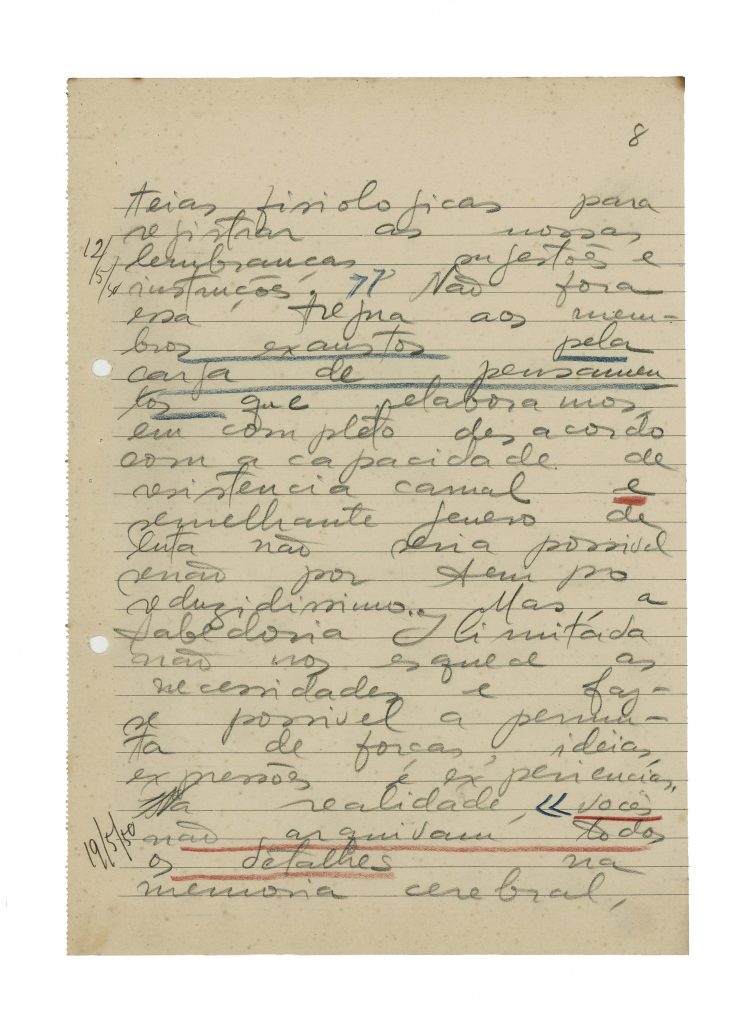 8
teias fisiologicas para
registrar as nossas
12/5/50
lembranças, sugestões e
instruções. >> Não fora
essa tregua aos mem-
bros exaustos pela
carga de pensamen
tos que elaboramos,
em completo desacordo
com a capacidade de
resistencia carnal e
semelhante genero de
luta não seria possivel
senão por tempo
reduzidissimo... Mas, a
Sabedoria Ilimitada
não nos esquece as
necessidades e faz-
se possivel a permu-
ta de forças, ideias,
expressões e experiencias.
Na realidade, << vocês
19/5/50
não arquivam todos
os detalhes na
memoria cerebral,